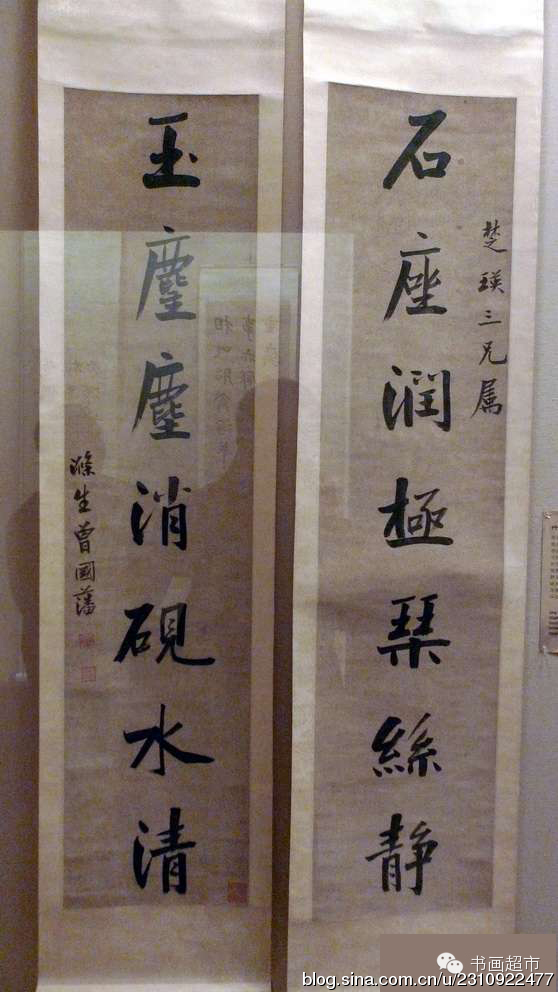 楚瑛三兄属
石座潤極琹絲静
玉麈塵消硯水清
滌生曾國藩
书画超市
blog.sina.com.cn/u/2310922477